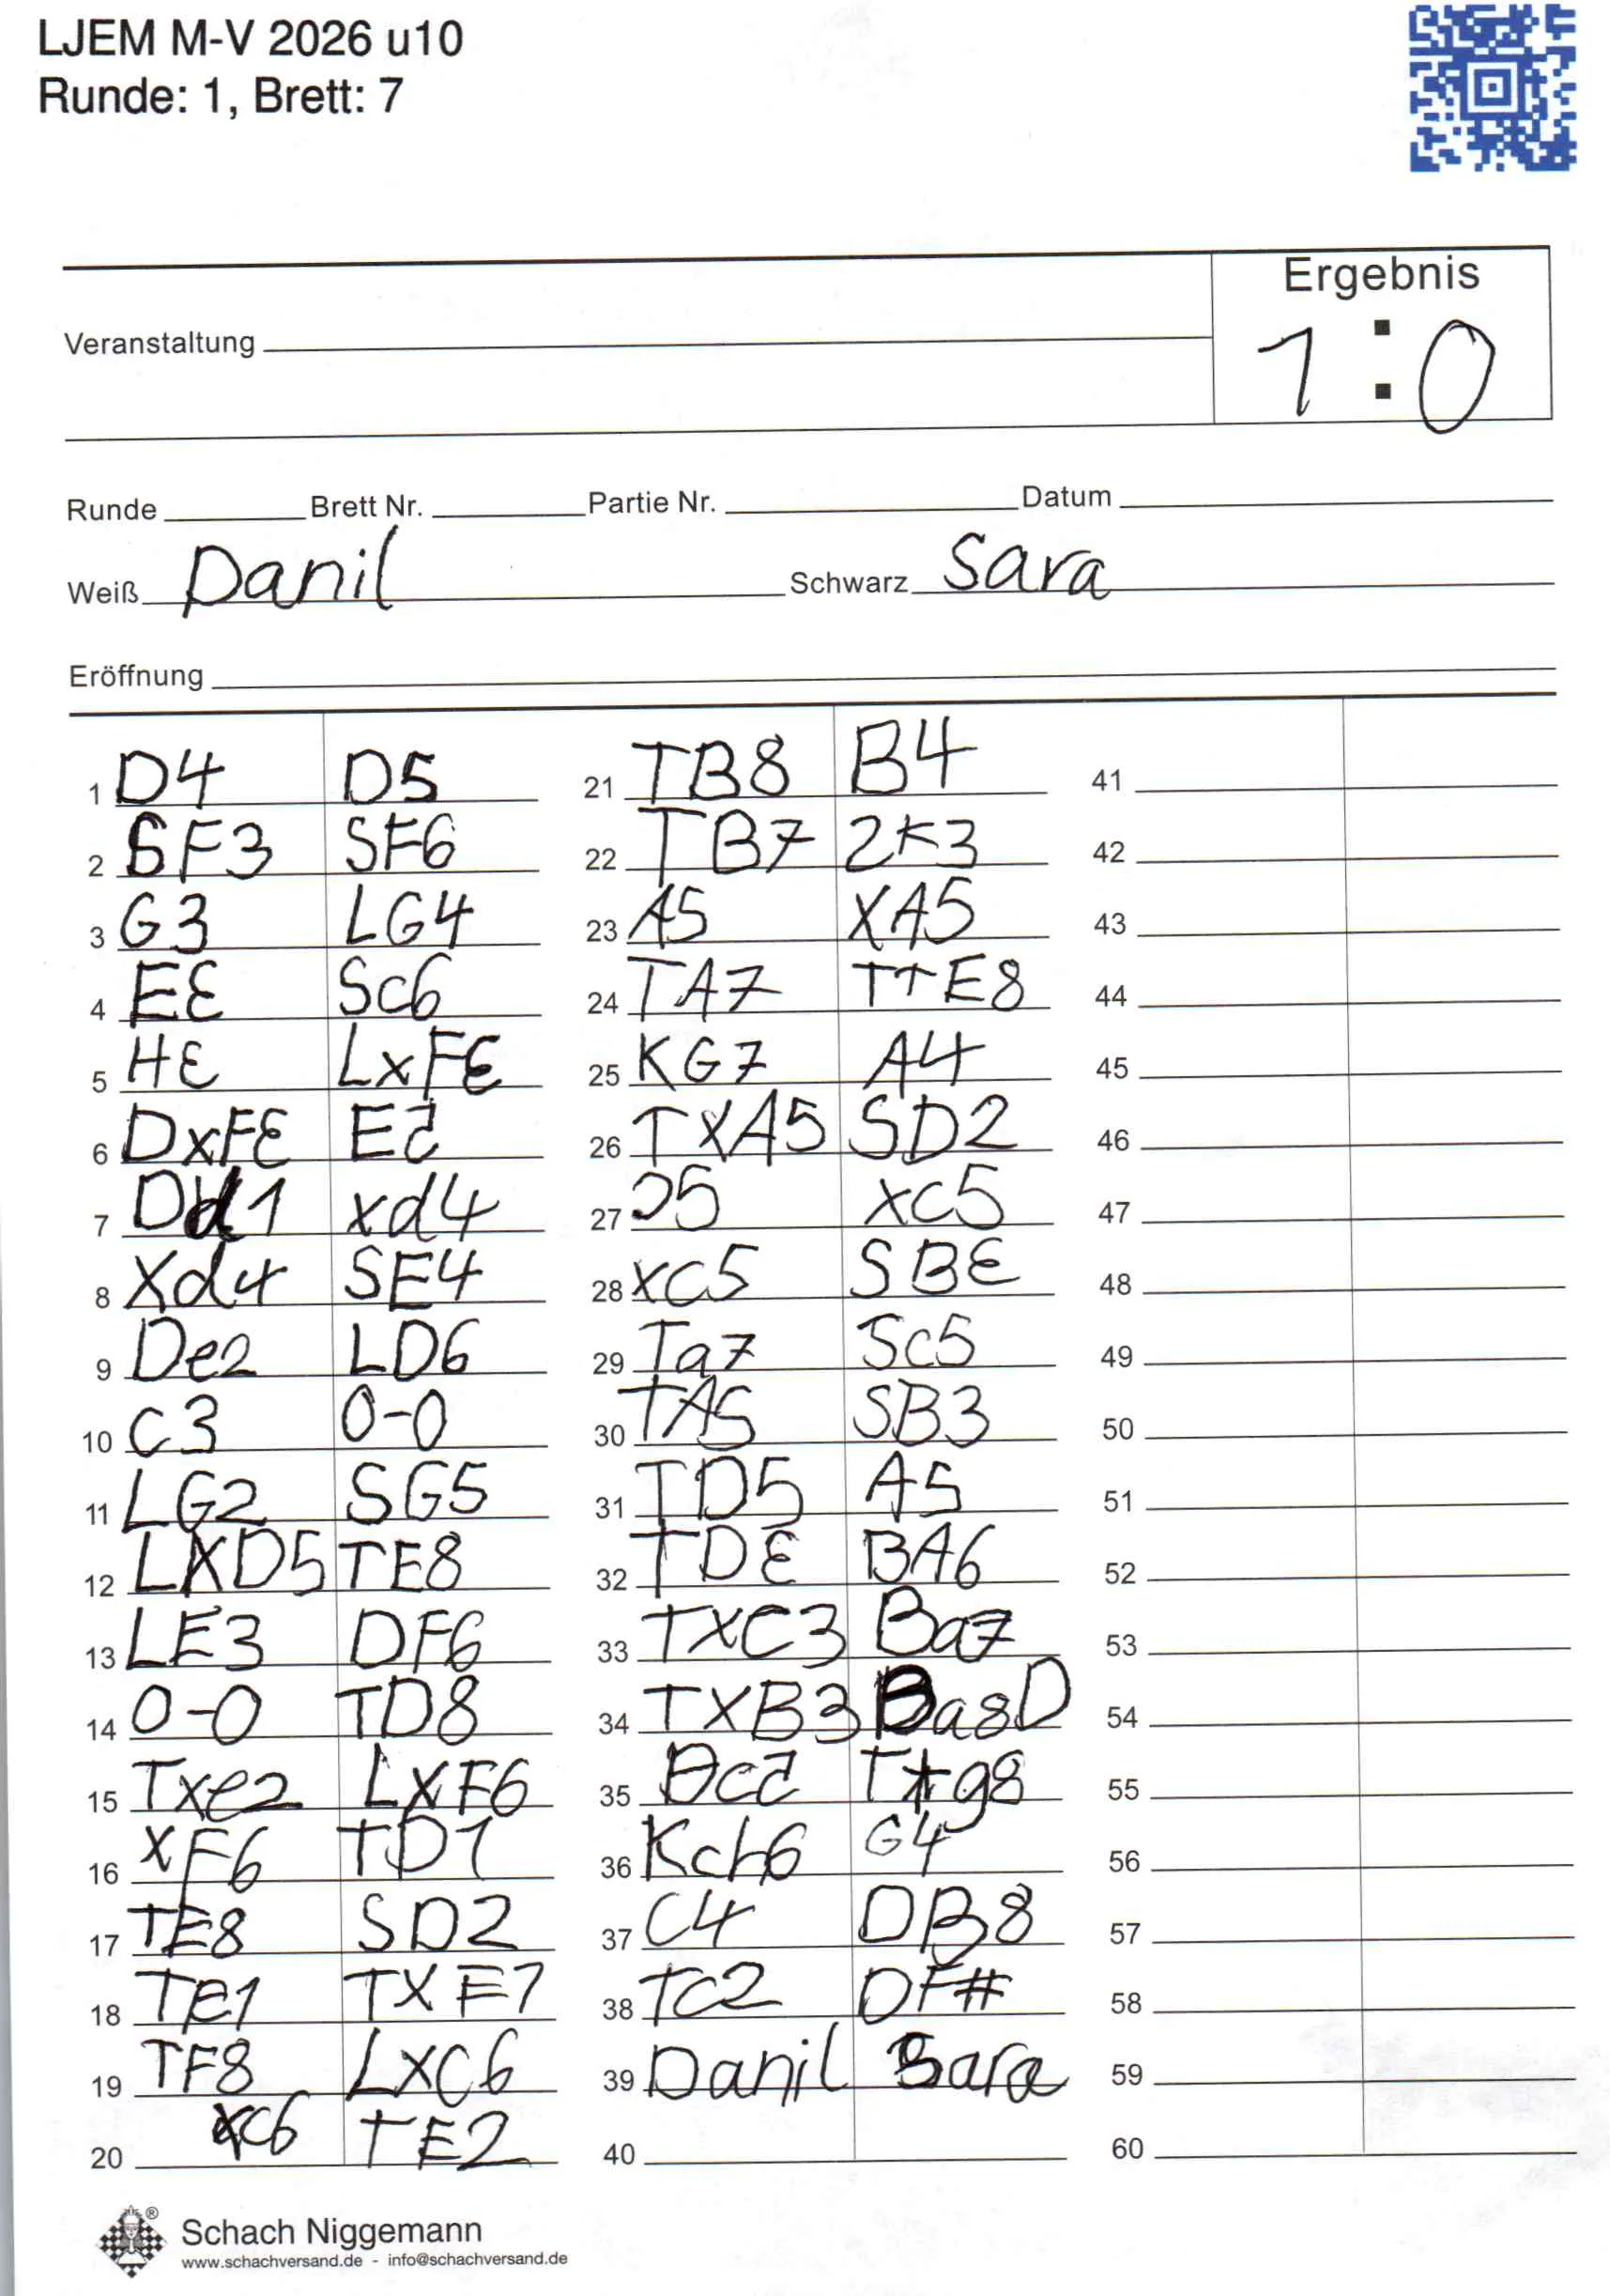 LJEM M-V 2026 u10
Runde: 1, Brett: 7
Ergebnis
Veranstaltung
1 : 0
Runde Brett Nr. Partie Nr. Datum
Weiß Danil Schwarz Sara
Eröffnung
1 D4 D5
2 SF3 SF6
3 G3 LG4
4 E3 Sc6
5 H3 LxF3
6 DxF3 E5
7 Dd1 xd4
8 Xd4 SE4
9 De2 LD6
10 C3 0-0
11 LG2 SG5
12 LXD5 TE8
13 LE3 DF6
14 0-0 TD8
15 Txe2 LXF6
16 XF6 TD1
17 TE8 SD2
18 TE1 TXF7
19 TF8 LXC6
20 xc6 TE2
21 TB8 B4
22 TB7 2K3
23 A5 XA5
24 TA7 TTE8
25 KG7 A4
26 TXA5 SD2
27 55 xc5
28 xc5 SB3
29 Ta7 Sc5
30 TA5 SB3
31 TD5 A5
32 TD3 BA6
33 TXC3 Ba7
34 TXB3 Ba8D
35 Bc2 Tg8
36 Kch6 G4
37 C4 DB8
38 Tc2 DF#
39 Danil Sara
40
41
42
43
44
45
46
47
48
49
50
51
52
53
54
55
56
57
58
59
60
Schach Niggemann
www.schachversand.de - info@schachversand.de